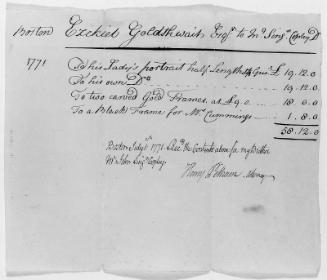 Boston Ezekiel Goldthwait Esqr. to Jno. Singn. Copley Dr
1771 To his Lady's portrait half Length 14 Guis. £ 19.12.0
To his own Do 19.12.0
To two carved Gold Frames at £9.0 18.0.0
To a Black Frame for Mr. Cummings 1.8.0
58.12.0
Boston July 1st 1771 Recd. the Contents above for my Brother
Mr John Sing. Copley
Henry Pelham